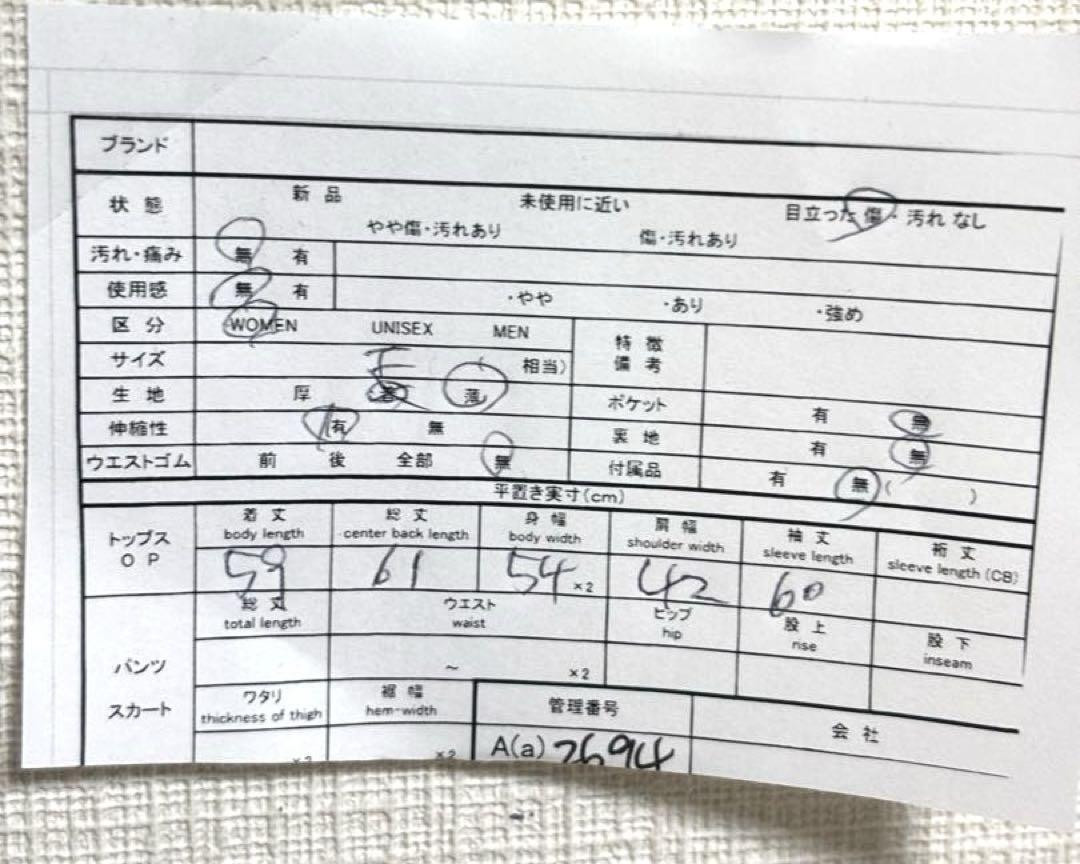 ブランド
状態 新品 未使用に近い 目立った傷・汚れ なし
やや傷・汚れあり 傷・汚れあり
汚れ・痛み 無 有
使用感 無 有 ・やや ・あり ・強め
区分 WOMEN UNISEX MEN 特徴
備考
サイズ ( 相当)
生地 厚 普 薄 ポケット 有 無
伸縮性 有 無 裏地 有 無
ウエストゴム 前 後 全部 無 付属品 有 無 ( )
平置き実寸(cm)
トップス
OP
着丈 総丈 身幅 肩幅 袖丈 裄丈
body length center back length body width shoulder width sleeve length sleeve length (CB)
59 61 54 ×2 42 60
総丈 ウエスト ヒップ 股上 股下
total length waist hip rise inseam
パンツ ～ ×2
スカート ワタリ 裾幅 管理番号 会社
thickness of thigh hem-width
×2 ×2 A(a) 2694